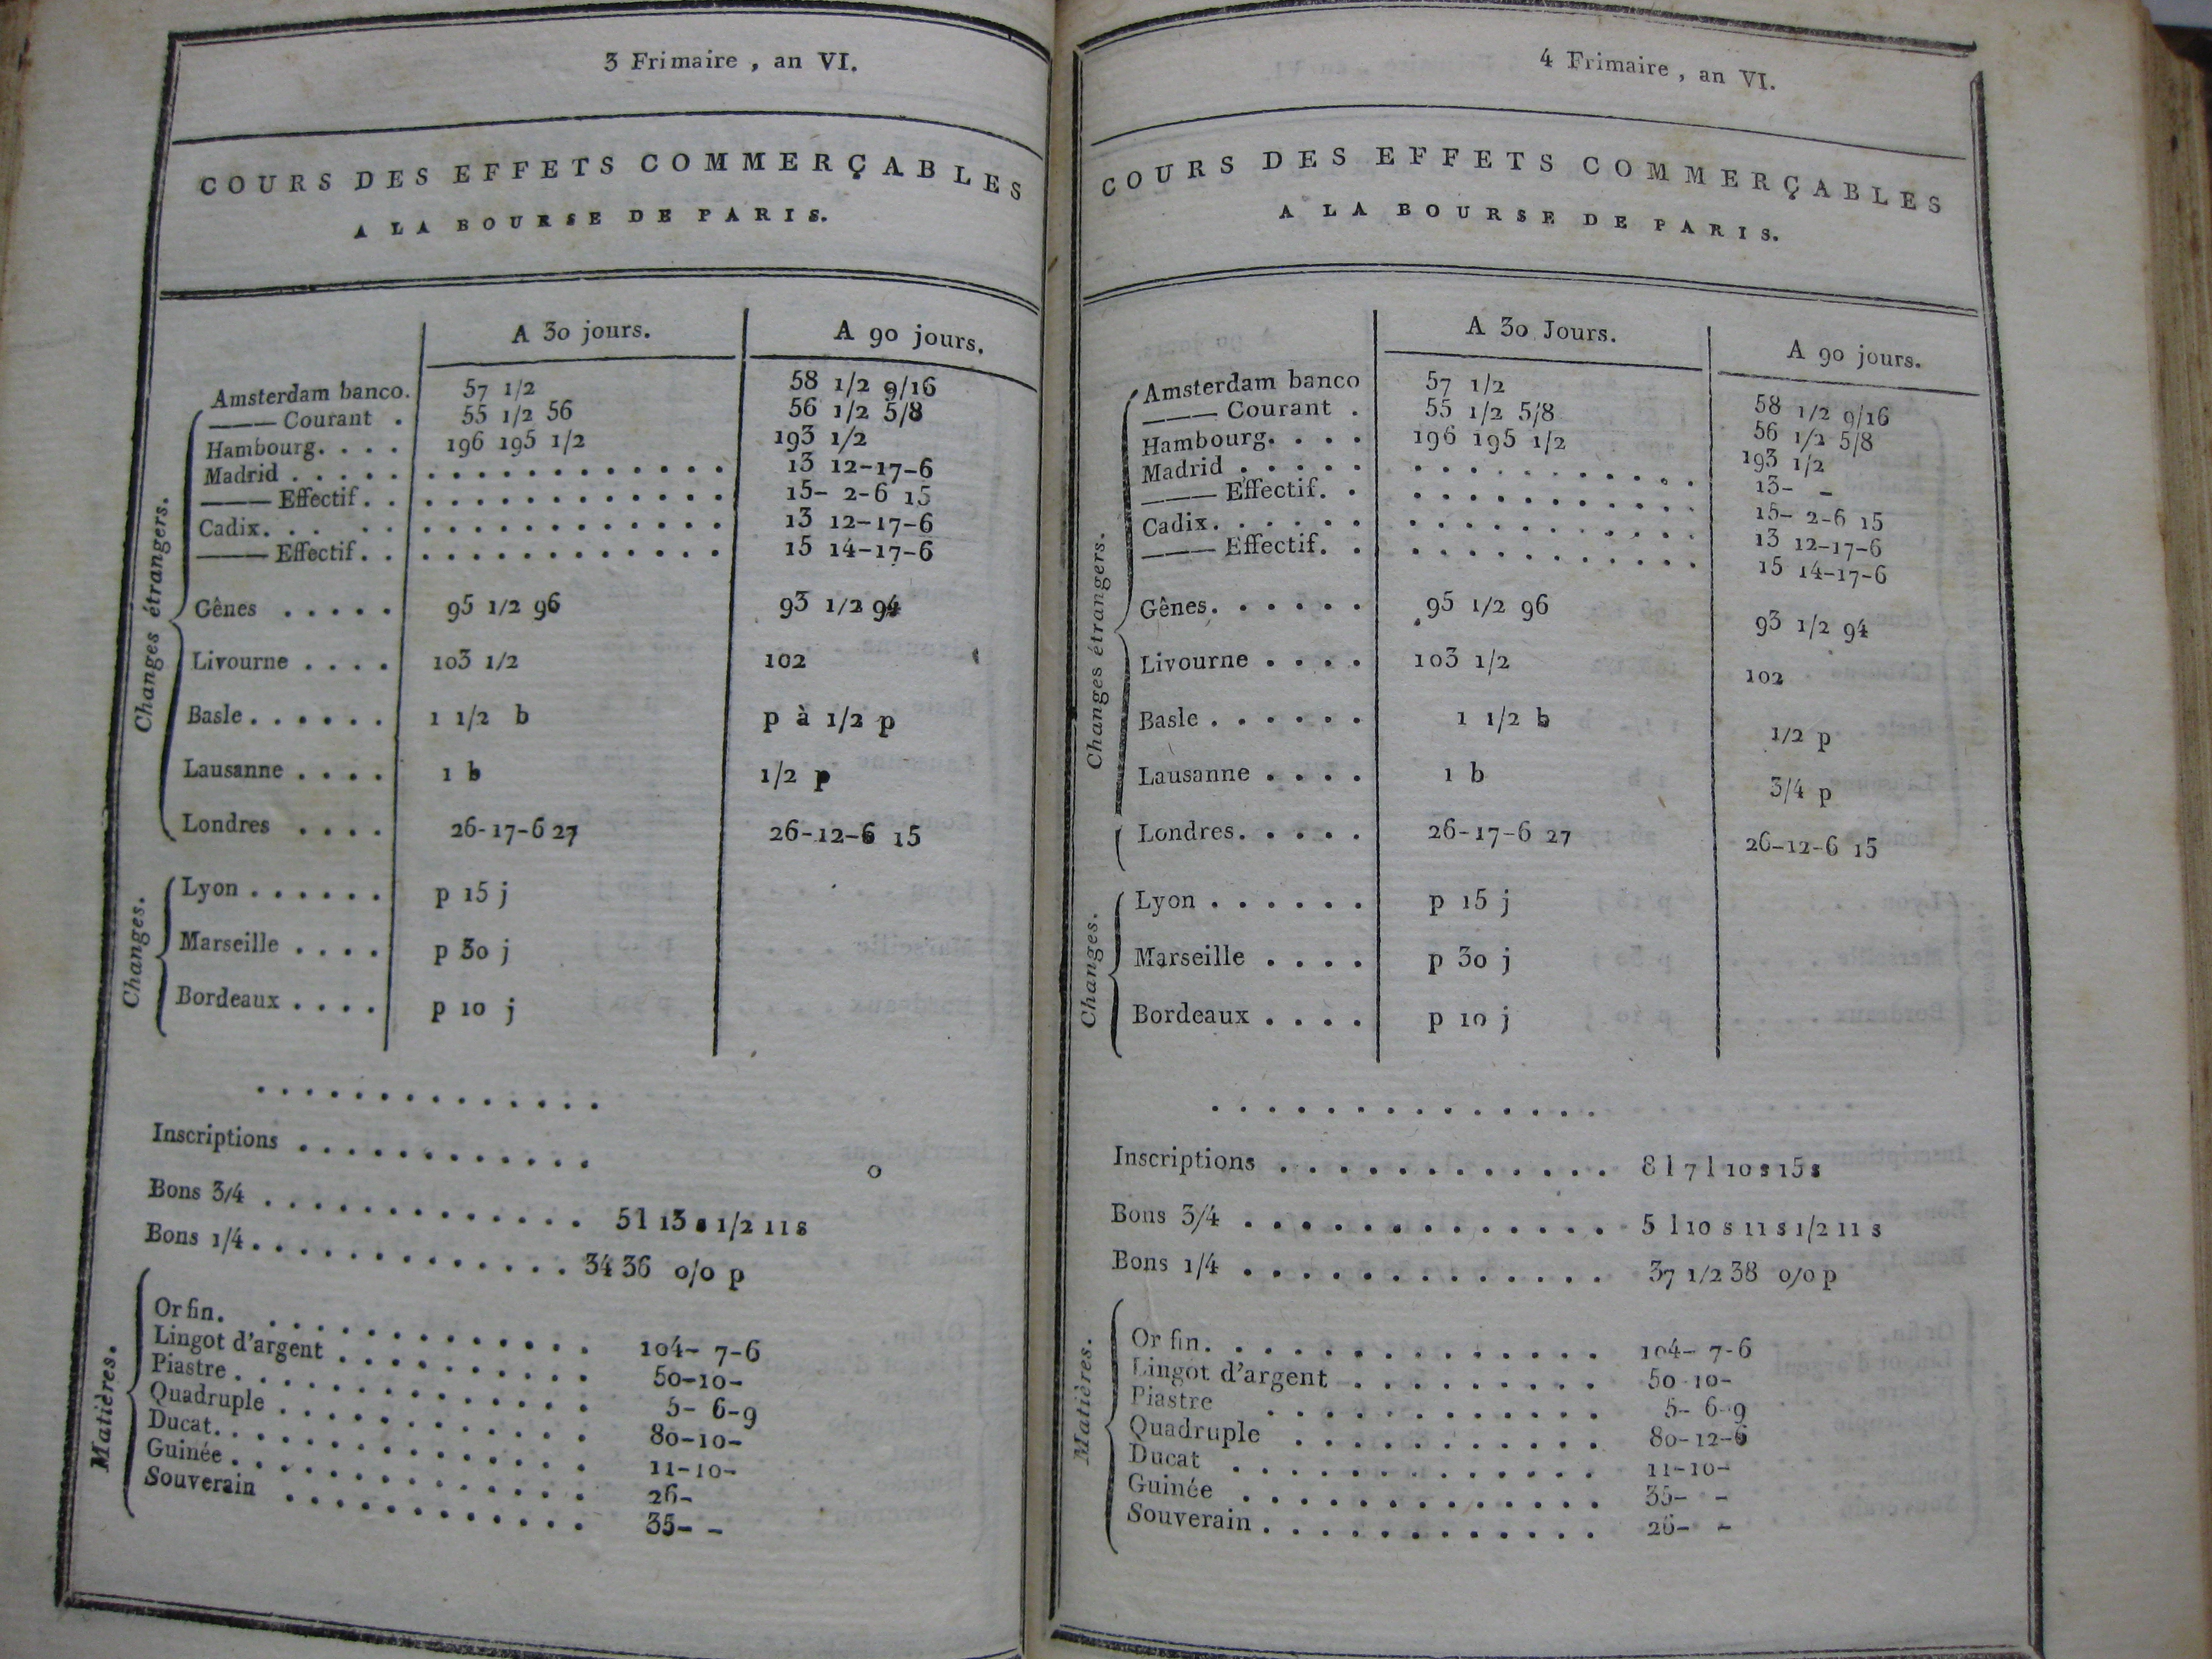 3 Frimaire, an VI.
COURS DES EFFETS COMMERÇABLES
A LA BOURSE DE PARIS.
A 30 jours. A 90 jours.
Changes étrangers.
Amsterdam banco. 57 1/2 58 1/2 9/16
——— Courant . 55 1/2 56 56 1/2 5/8
Hambourg. . . . 196 195 1/2 193 1/2
Madrid . . . . . . . . . . . . . . . . . 13 12-17-6
——— Effectif. . . . . . . . . . . . . . . 15- 2-6 15
Cadix. . . . . . . . . . . . . . . . . . 13 12-17-6
——— Effectif. . . . . . . . . . . . . . . 15 14-17-6
Gênes . . . . . 95 1/2 96 93 1/2 94
Livourne . . . . 103 1/2 102
Basle. . . . . . 1 1/2 b p à 1/2 p
Lausanne . . . . 1 b 1/2 p
Londres . . . . 26-17-6 27 26-12-6 15
Changes.
Lyon . . . . . . p 15 j
Marseille . . . . p 30 j
Bordeaux . . . . p 10 j
. . . . . . . . . . . . . . .
Inscriptions . . . . . . . . . . . . . o
Bons 3/4 . . . . . . . . . . . . . . 5 l 13 s 1/2 11 s
Bons 1/4. . . . . . . . . . . . . . 34 36 o/o p
Matières.
Or fin. . . . . . . . . . . . . . . 104- 7-6
Lingot d'argent . . . . . . . . . . 50-10-
Piastre . . . . . . . . . . . . . . 5- 6-9
Quadruple . . . . . . . . . . . . . 80-10-
Ducat. . . . . . . . . . . . . . . 11-10-
Guinée . . . . . . . . . . . . . . 26-
Souverain . . . . . . . . . . . . . 35- -
4 Frimaire, an VI.
COURS DES EFFETS COMMERÇABLES
A LA BOURSE DE PARIS.
A 30 Jours. A 90 jours.
Changes étrangers.
Amsterdam banco 57 1/2 58 1/2 9/16
——— Courant . 55 1/2 5/8 56 1/2 5/8
Hambourg. . . . 196 195 1/2 193 1/2
Madrid . . . . . . . . . . . . . . . . . 13- -
——— Effectif. . . . . . . . . . . . . . . 15- 2-6 15
Cadix. . . . . . . . . . . . . . . . . . 13 12-17-6
——— Effectif. . . . . . . . . . . . . . . 15 14-17-6
Gênes. . . . . . 95 1/2 96 93 1/2 94
Livourne . . . . 103 1/2 102
Basle . . . . . . 1 1/2 b 1/2 p
Lausanne . . . . 1 b 3/4 p
Londres. . . . . 26-17-6 27 26-12-6 15
Changes.
Lyon . . . . . . p 15 j
Marseille . . . . p 30 j
Bordeaux . . . . p 10 j
. . . . . . . . . . . . . . . . .
Inscriptions . . . . . . . . . . . . . . 8 l 7 l 10 s 15 s
Bons 3/4 . . . . . . . . . . . . . . 5 l 10 s 11 s 1/2 11 s
Bons 1/4 . . . . . . . . . . . . . . 37 1/2 38 o/o p
Matières.
Or fin. . . . . . . . . . . . . . . 104- 7-6
Lingot d'argent . . . . . . . . . . 50-10-
Piastre . . . . . . . . . . . . . . 5- 6-9
Quadruple . . . . . . . . . . . . . 80-12-6
Ducat . . . . . . . . . . . . . . . 11-10-
Guinée . . . . . . . . . . . . . . 35- -
Souverain . . . . . . . . . . . . . 26- -